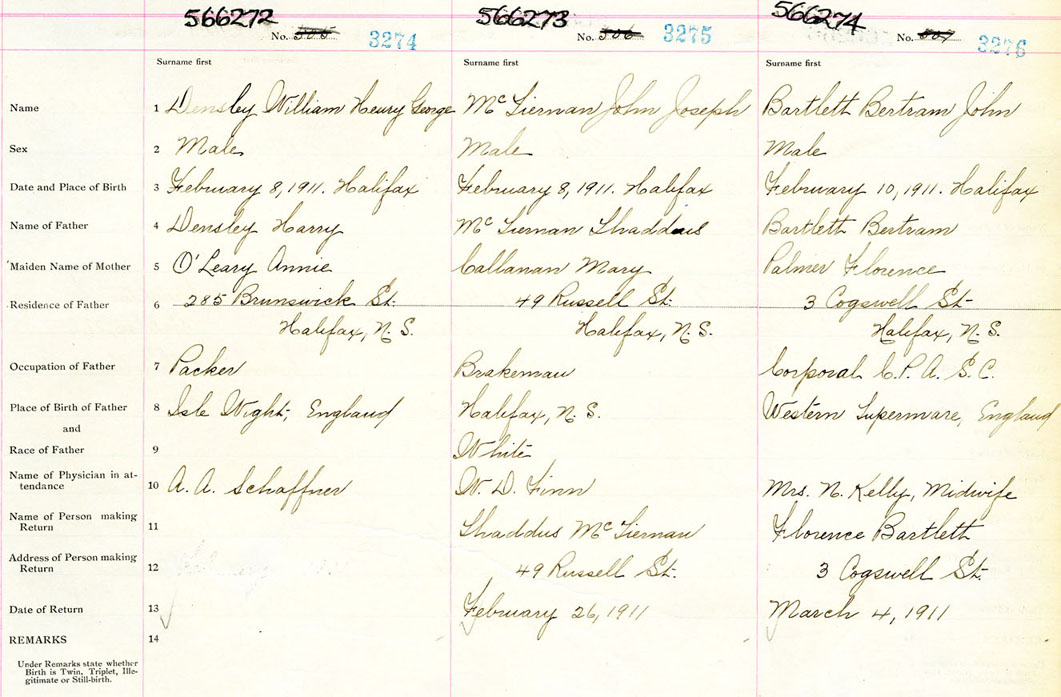 566272 566273 566274
No. 505 3274 No. 506 3275 No. 507 3276
Surname first Surname first Surname first
Name 1 Densley William Henry George McTiernan John Joseph Bartlett Bertram John
Sex 2 Male Male Male
Date and Place of Birth 3 February 8, 1911. Halifax February 8, 1911. Halifax February 10, 1911. Halifax
Name of Father 4 Densley Harry McTiernan Thaddeus Bartlett Bertram
Maiden Name of Mother 5 O'Leary Annie Callanan Mary Palmer Florence
Residence of Father 6 285 Brunswick St. 49 Russell St. 3 Cogswell St.
Halifax, N.S. Halifax, N.S. Halifax, N.S.
Occupation of Father 7 Packer Brakeman Corporal C.P.A.S.C.
Place of Birth of Father 8 Isle Wight, England Halifax, N.S. Western Supermare, England
and
Race of Father 9 White
Name of Physician in at-
tendance 10 A. A. Schaffner W. D. Finn Mrs. N. Kelly, Midwife
Name of Person making
Return 11 Thaddus McTiernan Florence Bartlett
Address of Person making
Return 12 49 Russell St. 3 Cogswell St.
Date of Return 13 February 26, 1911 March 4, 1911
REMARKS 14
Under Remarks state whether
Birth is Twin, Triplet, Ille-
gitimate or Still-birth.